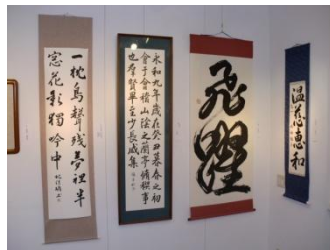 一枕鳥聲残夢裡半
窓花影獨吟中
永和九年歳在癸丑暮春之初
會于會稽山陰之蘭亭脩禊事
也群賢畢至少長咸集
飛躍
温慈惠和